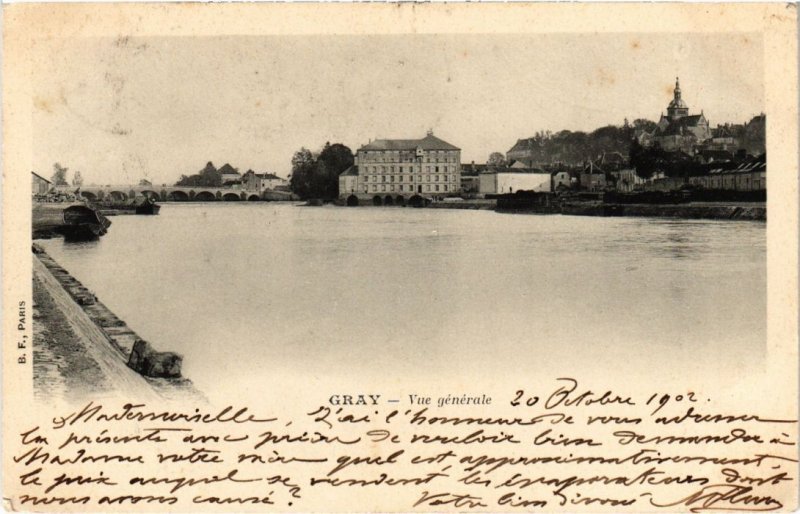 B. F., PARIS
GRAY — Vue générale
20 Octobre 1902.
Mademoiselle, J'ai l'honneur de vous adresser
la présente avec prière de vouloir bien demander à
Madame votre mère quel est approximativement
le prix auquel se vendent les évaporateurs dont
nous avons causé?
Votre bien dévoué